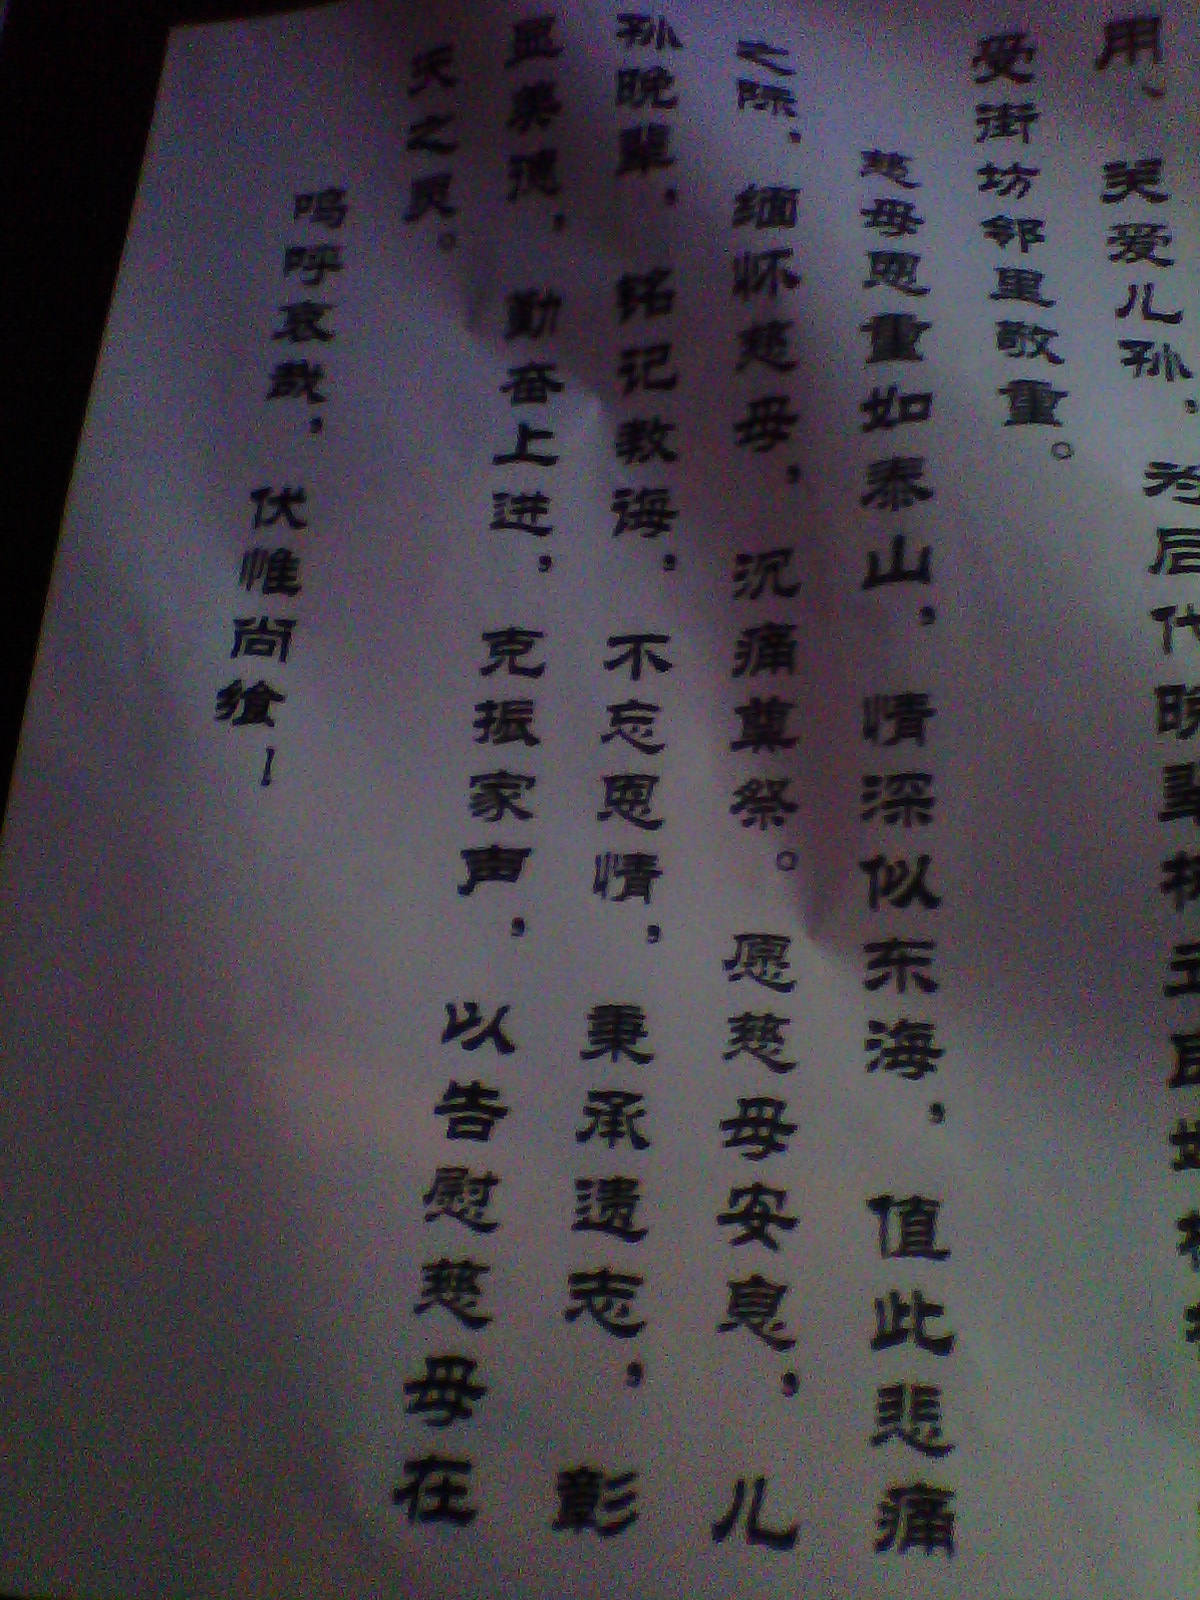 用、关爱儿孙，为后代晚辈树立良好榜
受街坊邻里敬重。
慈母恩重如泰山，情深似东海，值此悲痛
之际，缅怀慈母，沉痛奠祭。愿慈母安息，儿
孙晚辈，铭记教诲，不忘恩情，秉承遗志，彰
显美德，勤奋上进，克振家声，以告慰慈母在
天之灵。
呜呼哀哉，伏惟尚飨！